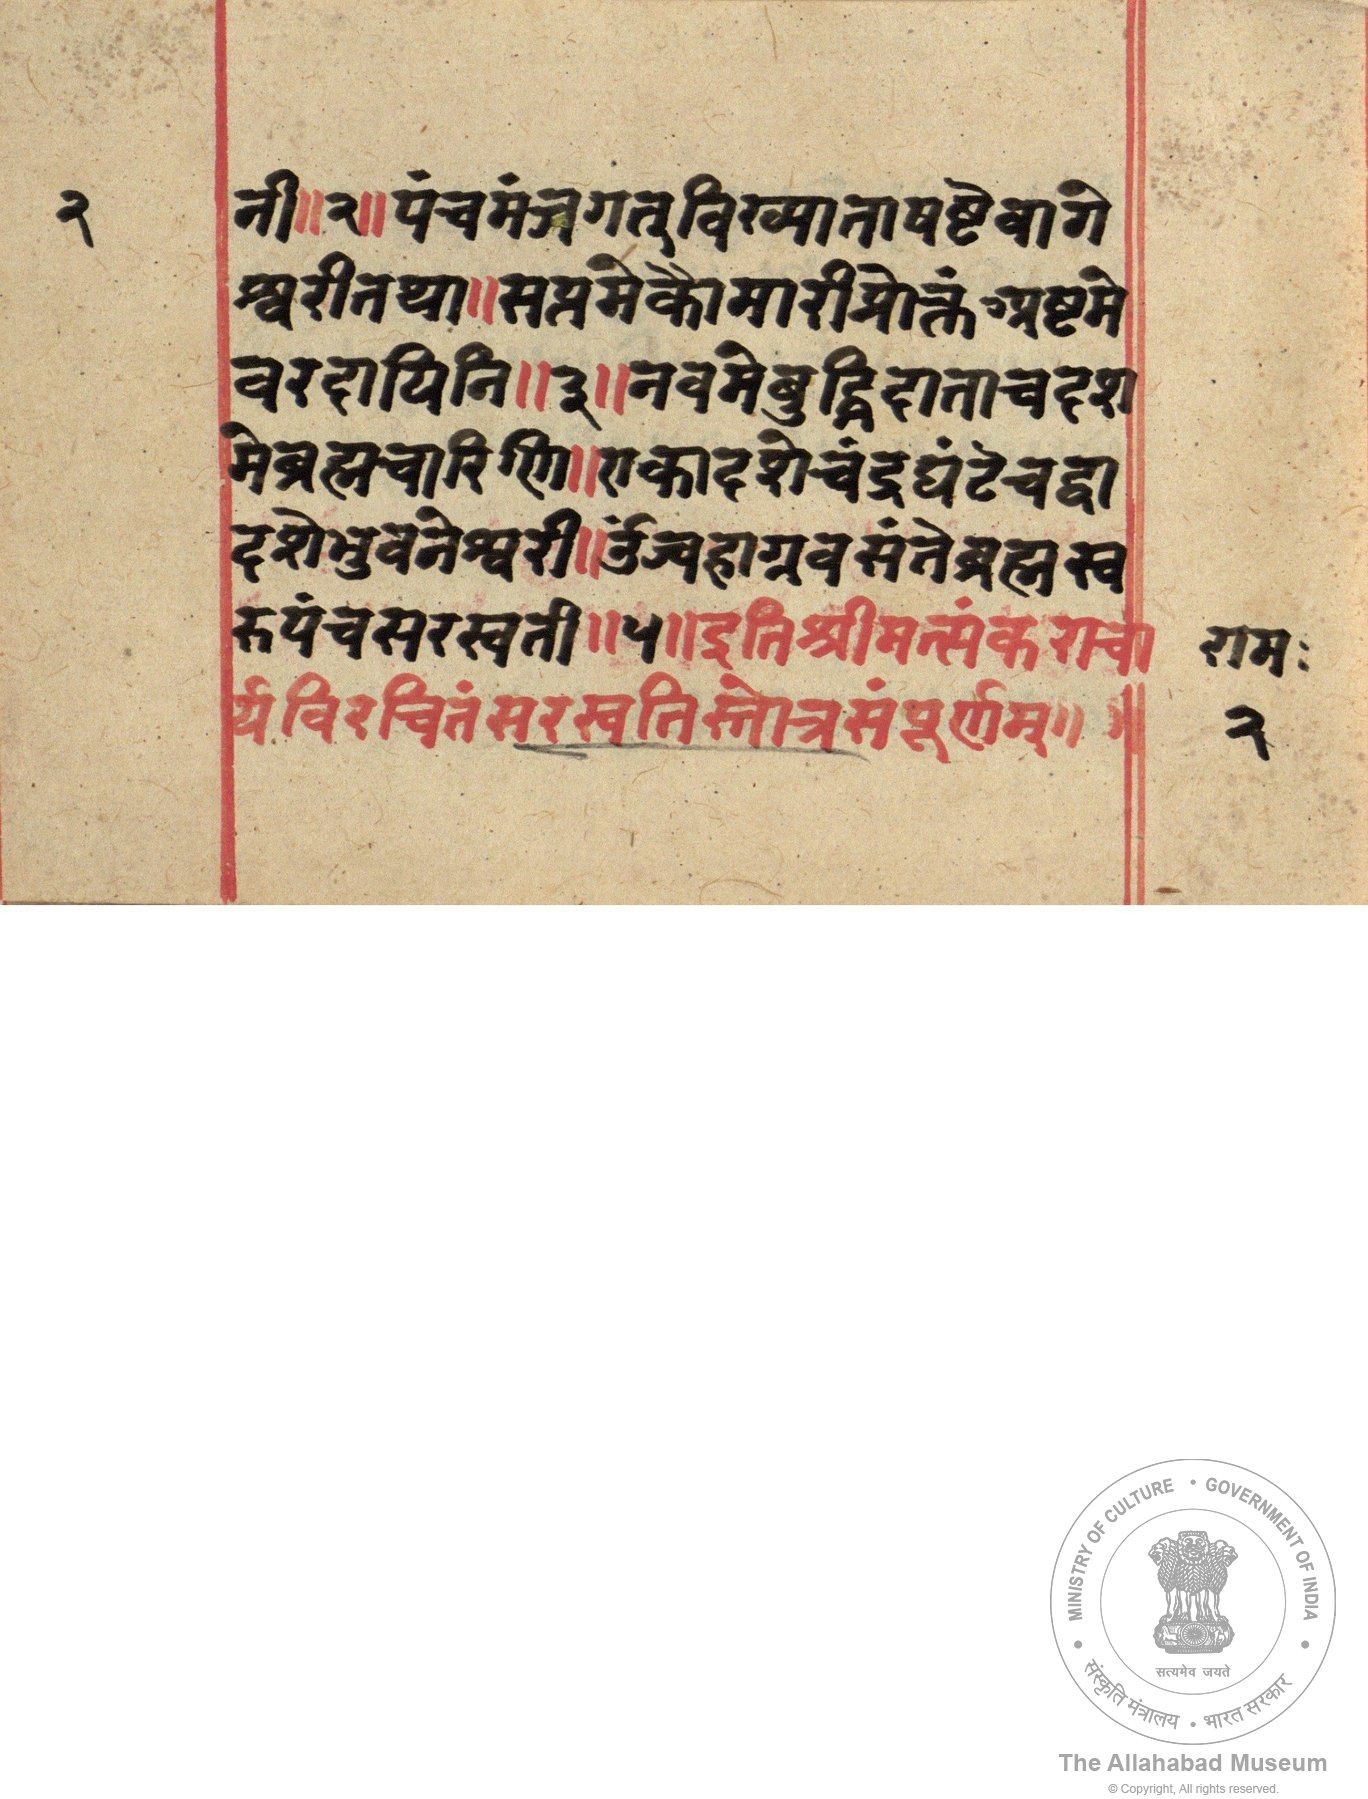 २
नी॥२॥पंचमंजगत्विख्याताषष्टेवागे
श्वरीतथा॥सप्तमेकौमारीप्रोक्तंअष्टमे
वरदायिनि॥३॥नवमेबुद्धिदाताचदश
मेब्रह्मचारिणि॥एकादशेचंद्रघंटेचद्वा
दशेभुवनेश्वरी॥
ब्रह्मस्व
रूपंचसरस्वती॥५॥इतिश्रीमत्संकराचा
र्यविरचितंसरस्वतिस्तोत्रसंपूर्णम्॥
रामः
२
MINISTRY OF CULTURE • GOVERNMENT OF INDIA
सत्यमेव जयते
संस्कृति मंत्रालय • भारत सरकार
The Allahabad Museum
© Copyright, All rights reserved.